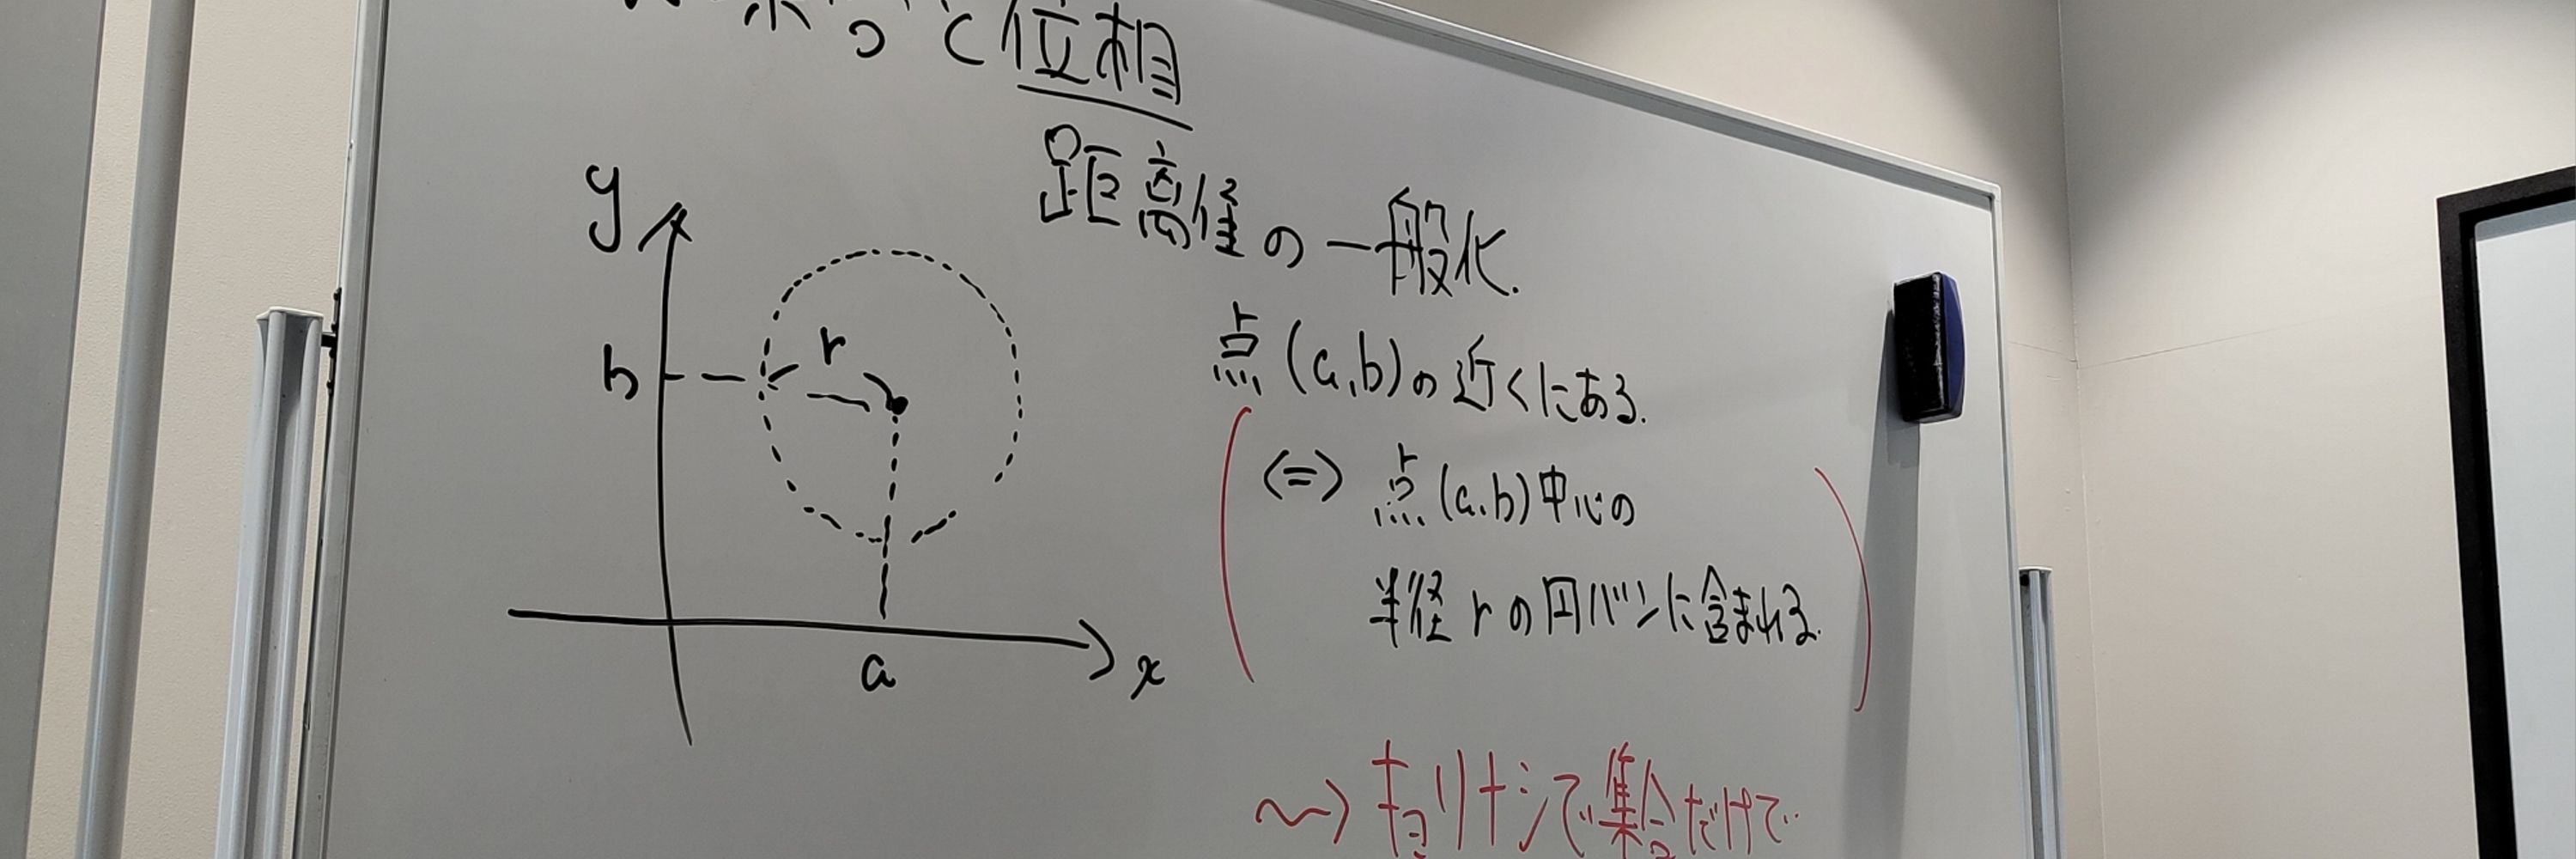 と位相
距離径の一般化.
y
r
b
a
x
点(a,b)の近くにある.
⇔ 点(a,b)中心の
半径rの円バンに含まれる.
⇝ キョリナシで集合だけで..